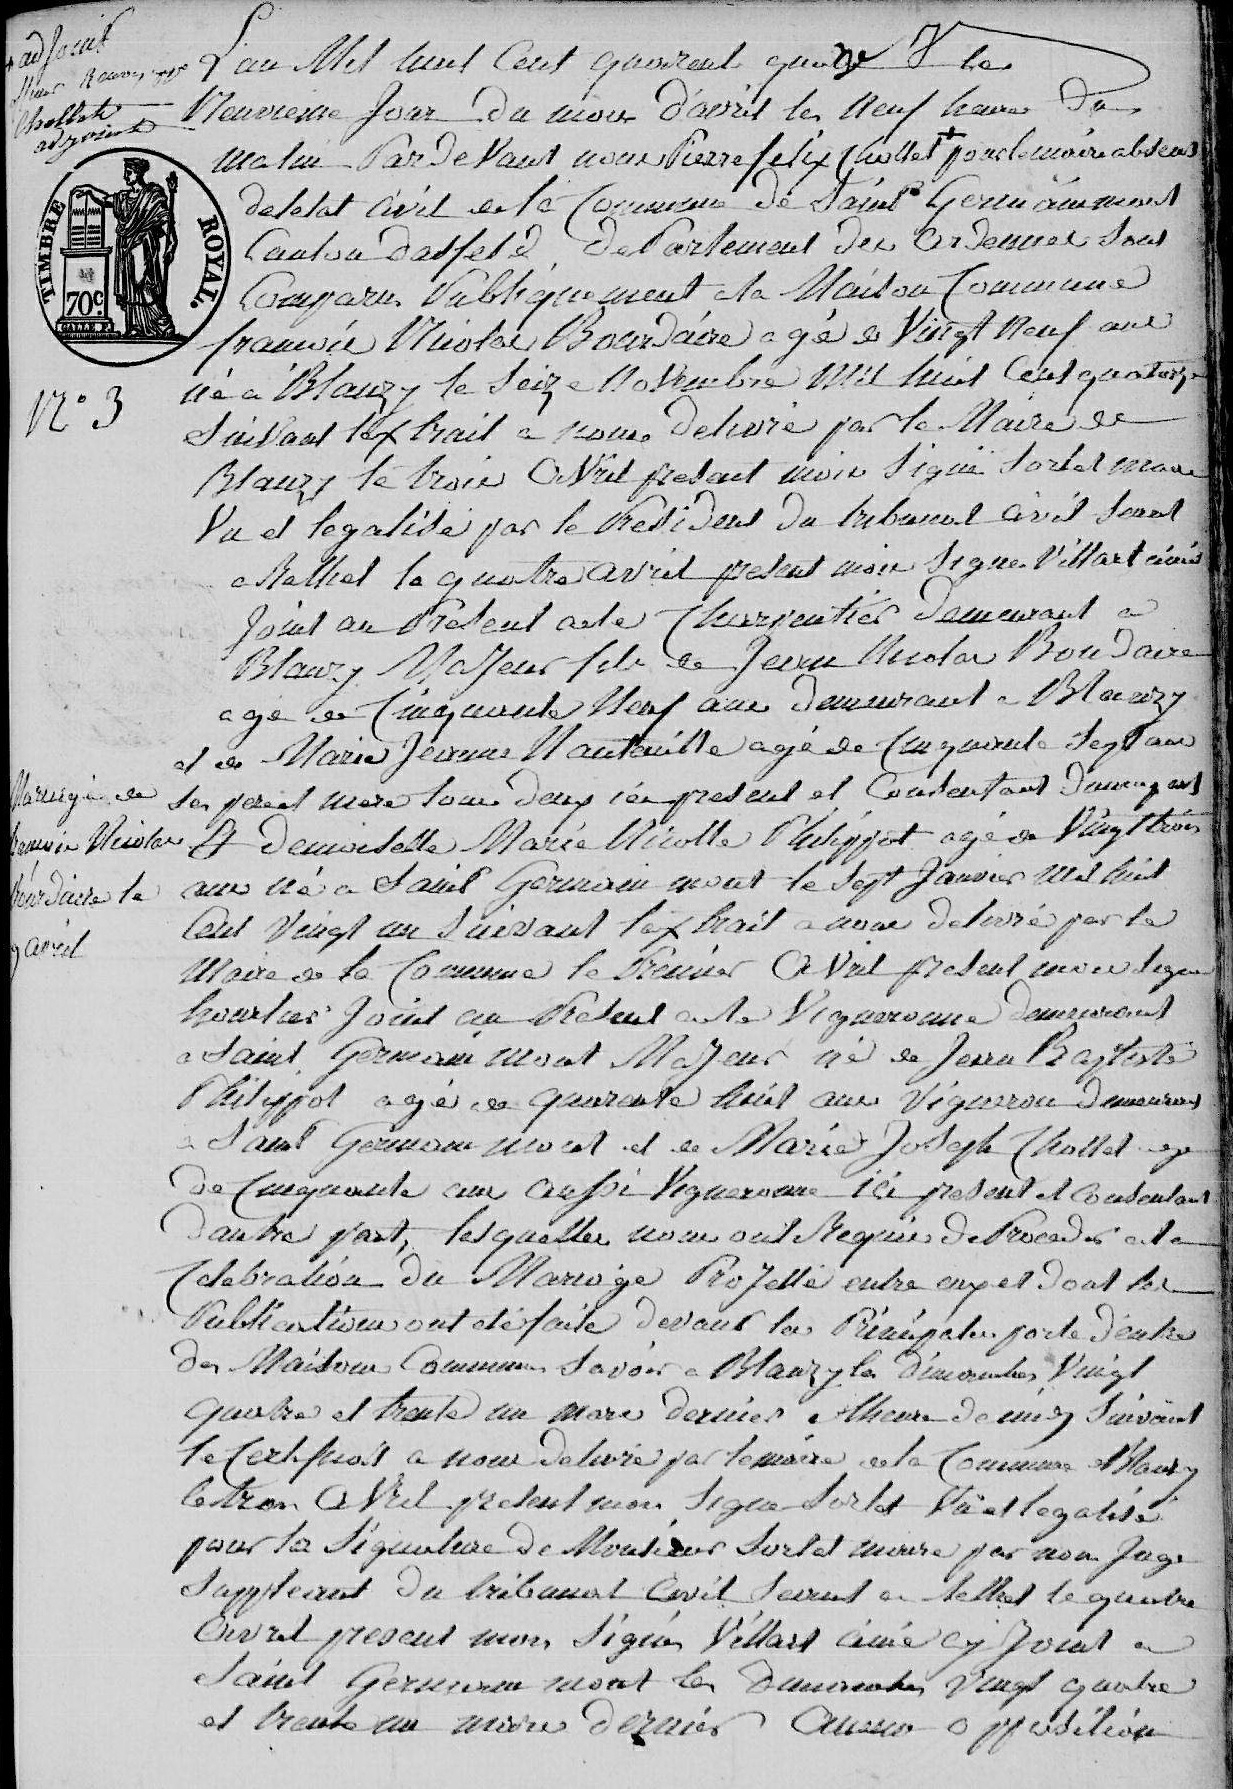 + adjoint
Chollet
adjoint
TIMBRE ROYAL.
70c.
N° 3
Mariage de
francois Nicolas
Bourdaire le
9 avril
L'an Mil huit Cent quarente quatre le
Neuvieme Jour du mois d'avril les Neuf heures du
matin Par devant nous Pierre felix Chollet + pour le maire absent
de letat Civil de la Commune de Saint Germainmont
Canton dasfeld departement des ardennes sont
Comparus Publiquement a la Maison Commune
francois Nicolas Bourdaire agé de Vingt Neuf ans
né a Blanzy le Seize Novembre Mil huit Cent quatorze
Suivant lextrait a nous delivré par le Maire de
Blanzy le trois Avril present mois Signé Sorlet maire
Vu et legalisé par le President du tribunal Civil seant
a Rethel le quatre avril present mois Signé Villart
Joint au Present acte Charpentier demeurant a
Blanzy Majeur fils de Jean Nicolas Bourdaire
agé de Cinquante Neuf ans demeurant a Blanzy
et de Marie Jeanne Nanteuille agé de Cinquante Sept ans
ses pere et mere tous deux ici present et Consentant d'une part
Et demoiselle Marie Nicolle Philippot agé de Vingt trois
ans né a Saint Germain mont le Sept Janvier Mil huit
Cent Vingt un Suivant lextrait a nous delivré par le
Maire de la Commune le Premier Avril present mois Signé
Joint au Present acte Vigneronne demeurant
a Saint Germain mont Majeur né de Jean Baptiste
Philippot agé de quarente huit ans Vigneron demeurant
a Saint Germain mont et de Marie Joseph Chollet agé
de Cinquante ans aussi Vigneronne ici present et Consentant
d'autre part, lesquelles nous ont Requis de Proceder a la
Celebration du Mariage Projetté entre eux et dont les
Publications ont été faite devant la Principale porte d'entre
des Maisons Communes Savoir a Blanzy les dimanches Vingt
quatre et trente un mars dernier a lheure de midy Suivant
le Certificat a nous delivré par le maire de la Commune de Blanzy
le trois Avril present mois Signé Sorlet Vu et legalisé
pour la Signature de Monsieur Sorlet maire par nous Juge
Suppleant du tribunal Civil Seant a Rethel le quatre
Avril present mois Signé Villart cy Joint a
Saint Germain mont les dimanches Vingt quatre
et trente un mars dernier Aucune opposition